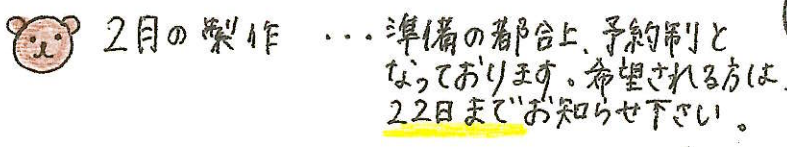 2月の製作 ・・・準備の都合上、予約制と
なっております。希望される方は、
22日までお知らせ下さい。